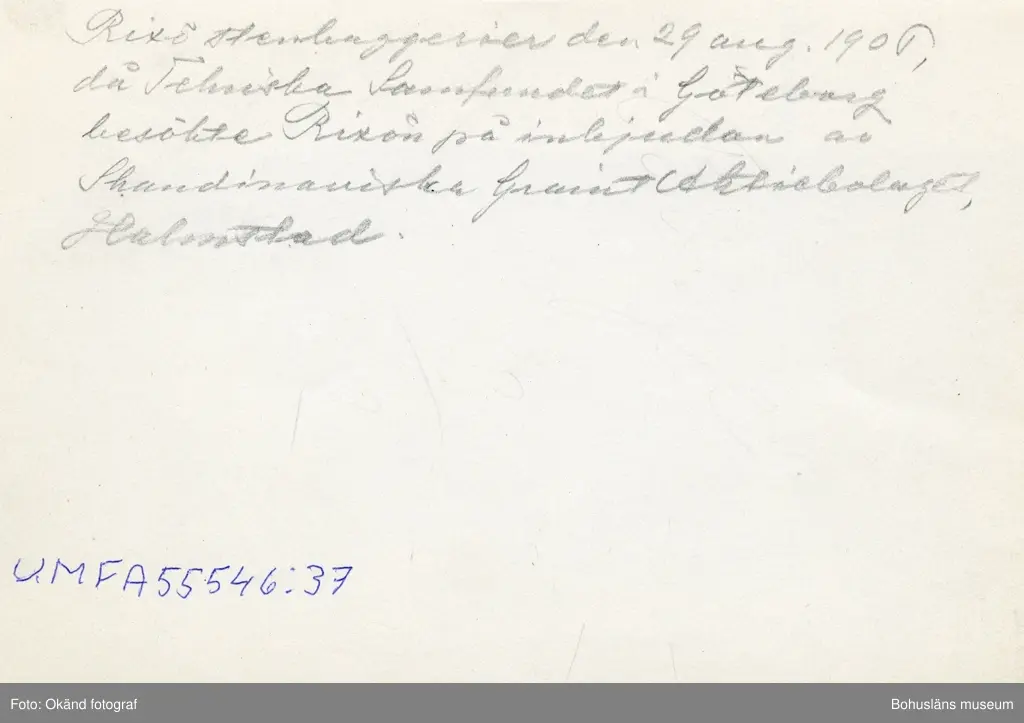 Rixö stenhuggerier den 29 aug. 1905,
då Tekniska Samfundet i Göteborg
besökte Rixön på inbjudan av
Skandinaviska Granit Aktiebolaget,
Halmstad.
UMFA55546:37
Foto: Okänd fotograf
Bohusläns museum